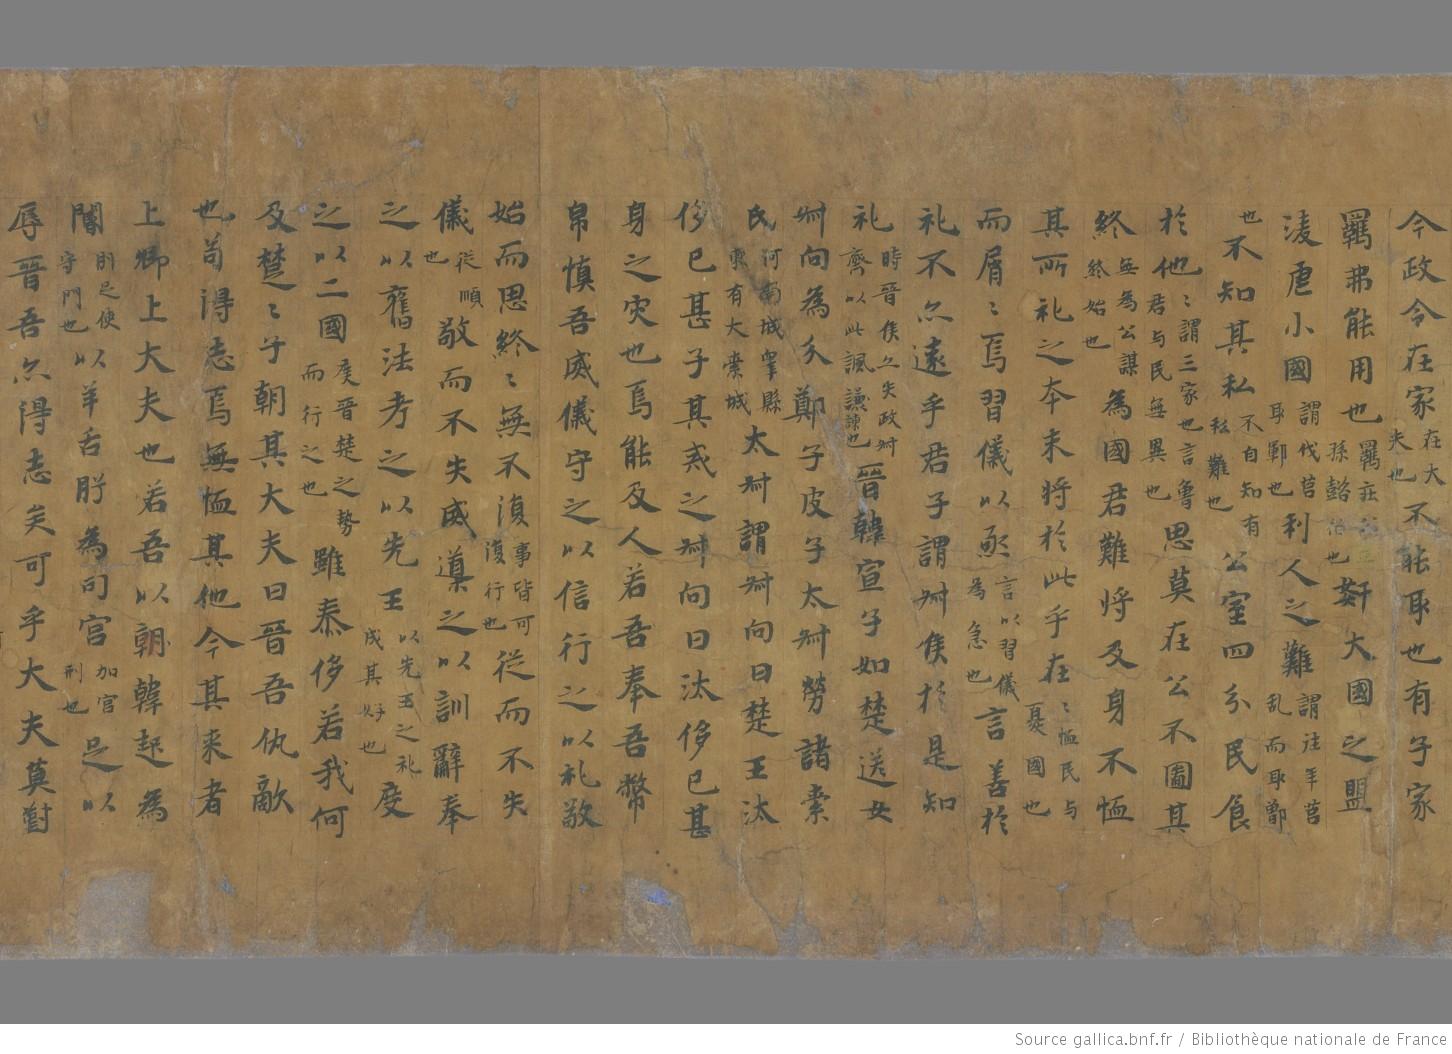 今政令在家在大夫也不能取也有子家
羈弗能用也羈莊公玄孫懿伯也奸大國之盟
淩虐小國謂伐莒取鄆也利人之難謂往年莒乱而取鄫
也不知其私不自知有私難也公室四分民食
於他〻謂三家也言魯君与民無異也思莫在公不圖其
終無為公謀終始也為國君難將及身不恤
其所礼之本末将於此乎在〻恤民与憂國也
而屑〻焉習儀以亟言以習儀為急也言善於
礼不亦遠乎君子謂州侯於是知
礼時晉侯亦失政州齊以此諷諫也晉韓宣子如楚送女
州向為介鄭子皮子太州勞諸索
氏河南城皋縣東有大索城太州謂州向曰楚王汰
侈已甚子其戒之州向曰汰侈已甚
身之灾也焉能及人若吾奉吾幣
帛慎吾威儀守之以信行之以礼敬
始而思終〻無不復事皆可復行也從而不失
儀從順也敬而不失威導之以訓辭奉
之以舊法考之以先王以先王之礼成其好也度
之以二國度晉楚之勢而行之也雖泰侈若我何
及楚〻子朝其大夫曰晉吾仇敵
也苟得志焉無恤其他今其来者
上卿上大夫也若吾以朝韓起為
閽刖足使守門也以羊舌肸為司宮加宮刑也足以
辱晉吾亦得志矣可乎大夫莫對
Source gallica.bnf.fr / Bibliothèque nationale de France